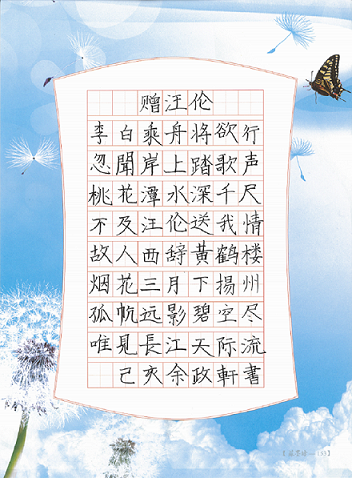 赠汪伦
李白乘舟将欲行
忽聞岸上踏歌声
桃花潭水深千尺
不及汪伦送我情
故人西辞黄鹤楼
烟花三月下揚州
孤帆远影碧空尽
唯見長江天际流
己亥余政軒書